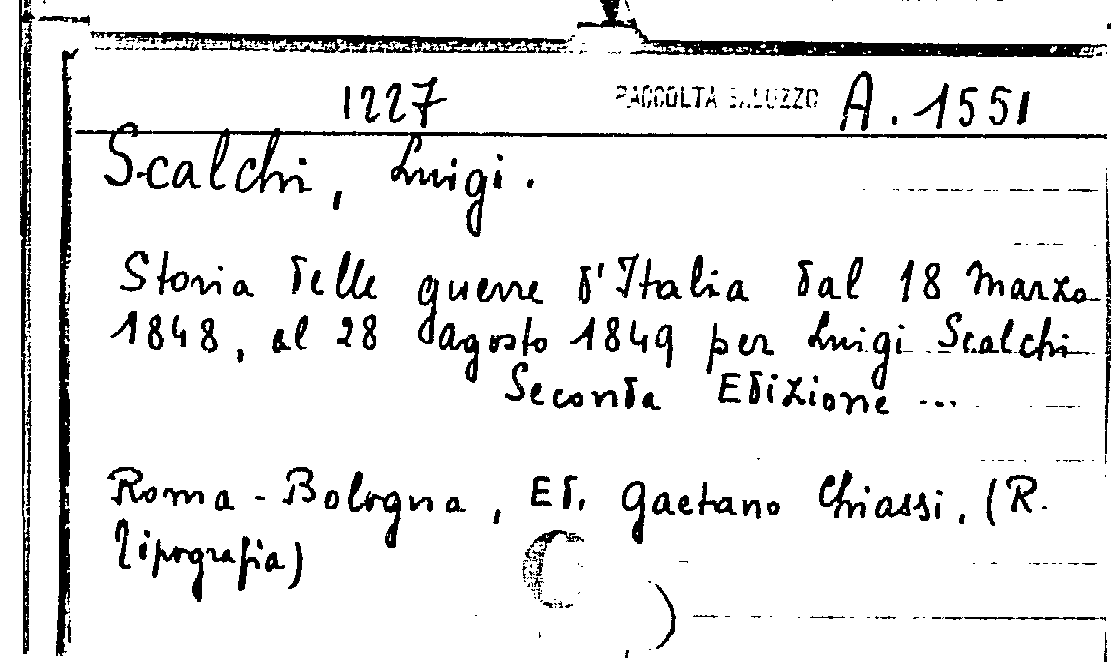 1227 RACCOLTA SALUZZO A. 1551
Scalchi, Luigi.
Storia delle guerre d'Italia dal 18 Marzo
1848, al 28 agosto 1849 per Luigi Scalchi
Seconda Edizione ...
Roma - Bologna, Ed. Gaetano Chiassi, (R.
Tipografia)